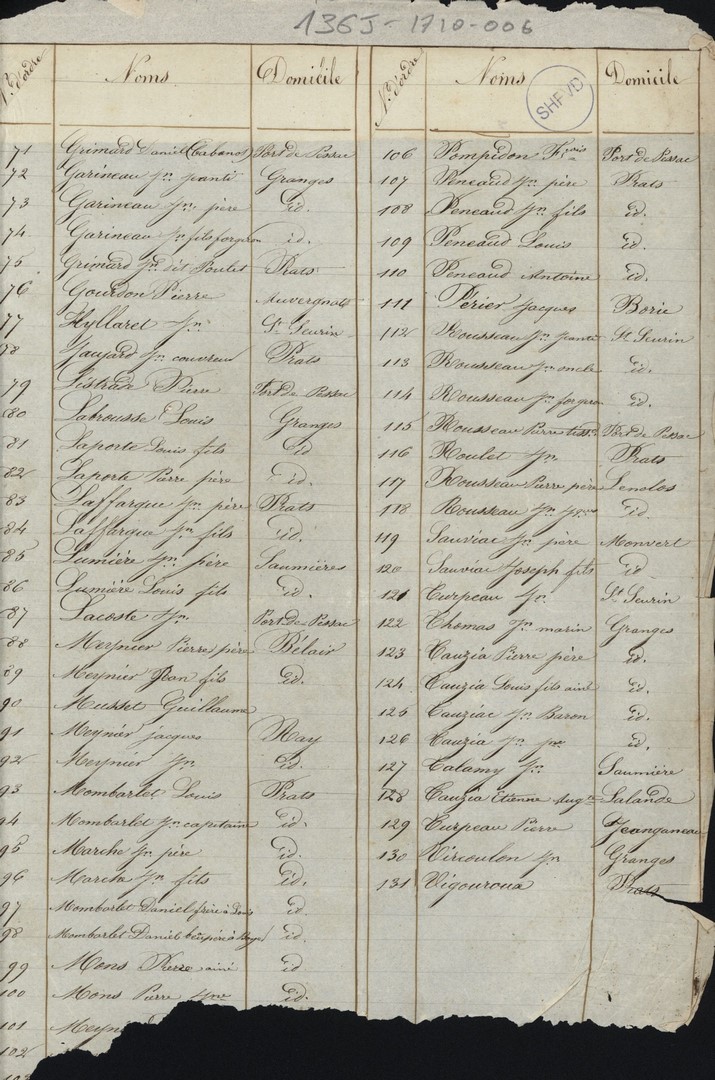 136J-1710-006
N.º d'ordre Noms Domicile
71 Grimard Daniel (Cabanos) Port de Pessac
72 Garineau Jn Granges
73 Garineau Jn père id.
74 Garineau Jn fils forgeron id.
75 Grimard Jn dit Poulet Prats
76 Gourdon Pierre Auvergnats
77 Hyllaret Jn St Seurin
78 Jaujard Jn couvreur Prats
79 Listrada Pierre Port de Pessac
80 Labrousse Louis Granges
81 Laporte Louis fils id
82 Laporte Pierre père id.
83 Laffargue Jn père Prats
84 Laffargue Jn fils id.
85 Lumière Jn père Saumières
86 Lumière Louis fils id.
87 Lacoste Jn Port de Pessac
88 Meynier Pierre père Bélair
89 Meynier Jean fils id.
90 Musset Guillaume
91 Meynier Jacques May
92 Meynier Jn id.
93 Mombarlet Louis Prats
94 Mombarlet Jn capitaine id.
95 Marche Jn père id.
96 Marche Jn fils id.
97 Mombarlet Daniel frère à Louis id
98 Mombarlet Daniel id.
99 Mons Pierre ainé id
100 Mons Pierre jne id.
101
102
103
N.º d'ordre Noms Domicile
SHPVD
106 Pompédon Fçois Port de Pessac
107 Peneaud Jn père Prats
108 Peneaud Jn fils id.
109 Peneaud Louis id.
110 Peneaud Antoine id.
111 Périer Jacques Borie
112 Rousseau Jn St Seurin
113 Rousseau Jn oncle id.
114 Rousseau Jn forgeron id.
115 Rousseau Pierre Port de Pessac
116 Roulet Jn Prats
117 Rousseau Pierre père Lenclos
118 Rousseau Jn id.
119 Sauviac Jn père Monvert
120 Sauviac Joseph fils id
121 Turpeau Jn St Seurin
122 Thomas Jn marin Granges
123 Tauzia Pierre père id.
124 Tauzia Louis fils ainé id.
125 Tauziac Jn Baron id.
126 Tauzia Jn jne id.
127 Talamy Jn Saumière
128 Tauzia Etienne Lalande
129 Turpeau Pierre Jeanganeau
130 Vircoulon Jn Granges
131 Vigouroux Prats